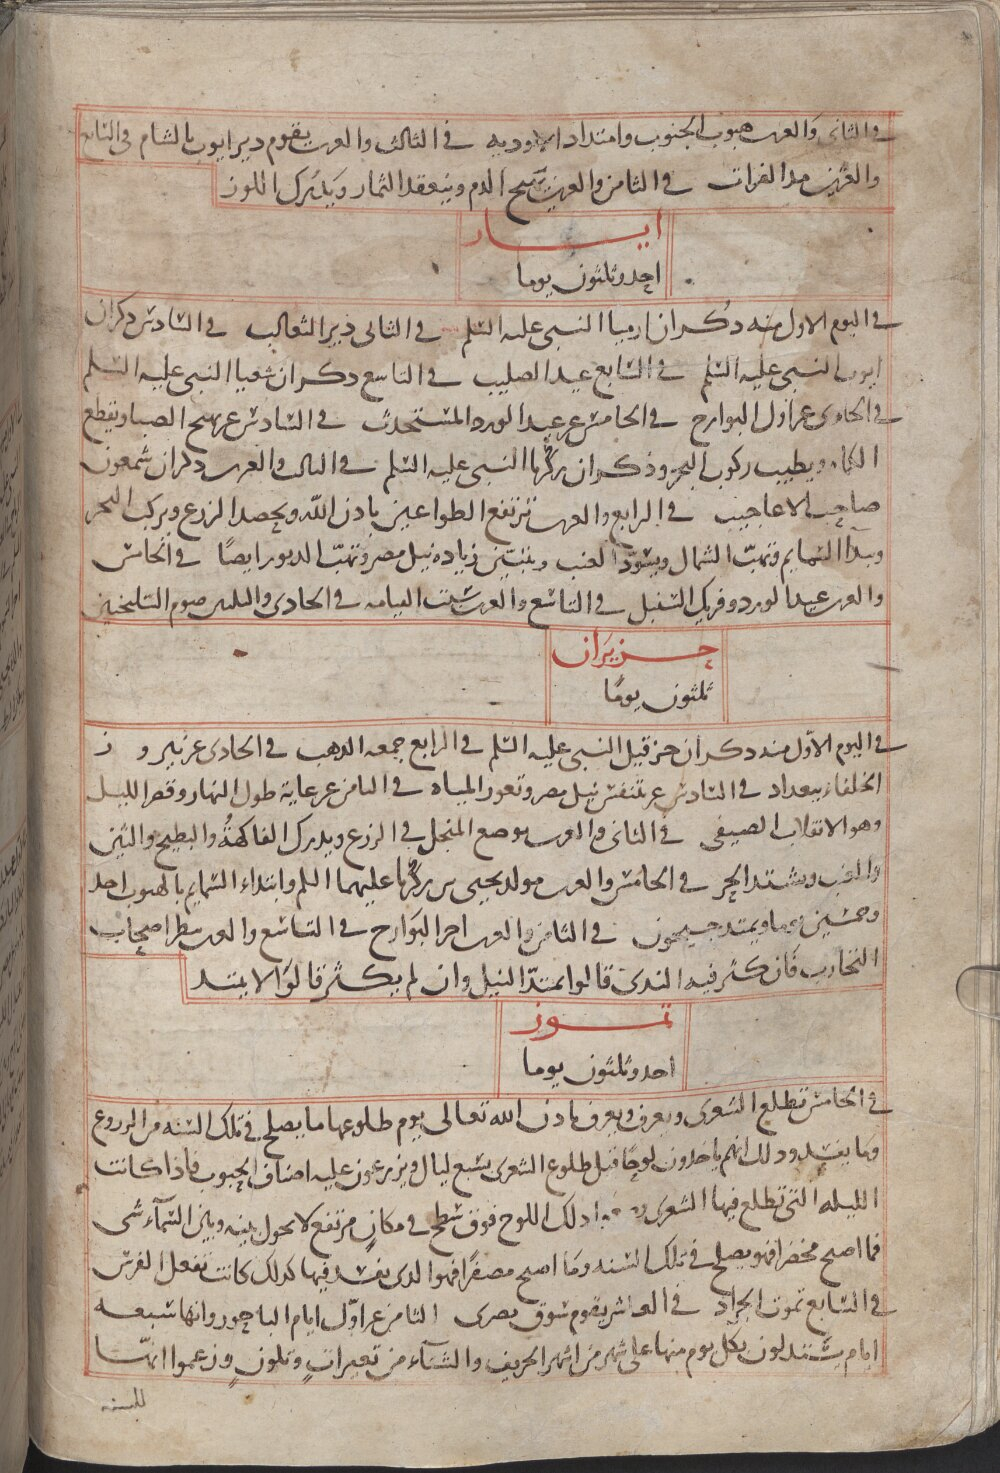 في الثاني والعشرين هبوب الجنوب وامتداد الاوديه في الثالث والعشرين يقوم دير ايوب بالشام في السابع
والعشرين مد الفرات في الثامن والعشرين يهيج الدم وينعقد الثمار ويدرك اللوز
ايـــار
احد وثلثون يوما
في اليوم الاول منه دكران ارميا النبي عليه السلم في الثاني دير الثعالب في السادس دكران
ايوب النبي عليه السلم في السابع عيد الصليب في التاسع دكران شعيا النبي عليه السلم
في الحادي عشر اول البوارح في الخامس عشر عيد الورد المستحدث في السادس عشر يهيج الصبا ويقطع
الكماه ويطيب ركوب البحر وذكران زكريا النبي عليه السلم في الثالث والعشرين دكران شمعون
صاحب الاعاجيب في الرابع والعشرين ترتفع الطواعين باذن الله ويحصد الزرع ويركب البحر
ويبدا السمايم وتهب الشمال ويسود العنب ويتبين زياده نيل مصر وتهب الدبور ايضا في الخامس
والعشرين عيد الورد وفريك السنبل في التاسع والعشرين سبت القيامه في الحادي والثلثين صوم السليحين
حـزيران
ثلثون يوما
في اليوم الاول منه دكران حزقيل النبي عليه السلم في الرابع جمعه الدهب في الحادي عشر نيروز
الخلفاء ببغداد في السادس عشر تنفس نيل مصر وتغور المياه في الثامن عشر غاية طول النهار وقصر الليل
وهو الانقلاب الصيفي في الثاني والعشرين يوضع المنجل في الزرع ويدرك الفاكهة والبطيخ والتين
والعنب ويشتد الحر في الخامس والعشرين مولد يحيى بن زكريا عليهما السلم وابتداء السمايم بالهبوب احد
وخمسين يوما ويمتد جيحون في الثامن والعشرين اخر البوارح في التاسع والعشرين ينظر اصحاب
التجارب فان كثر فيه الندى قالوا يمتد النيل وان لم يكثر قالوا لا يمتد
تمـــوز
احد وثلثون يوما
في الخامس تطلع الشعرى ويعرف باذن الله تعالى يوم طلوعها ما يصلح في تلك السنه من الزروع
وما يفسد ودلك انهم ياخدون لوحا قبل طلوع الشعرى بسبع ليال ويزرعون عليه اصناف الحبوب فاذا كانت
الليله التي تطلع فيها الشعرى دلك اللوح فوق سطح في مكان مرتفع لا يحول بينه وبين السماء شى
فما اصبح مخضرا فهو يصلح في تلك السنه وما اصبح مصفرا فهو الدى يفسد فيها كدلك كانت تفعل الفرس
في السابع تموت الجراد في العاشر يقوم سوق بصرى الثامن عشر اول ايام الباحور وانها سبعه
ايام يستدلون بكل يوم منها على شهر من اشهر الخريف والشتاء من تغيرات وتلون وزعموا انها
للسنه